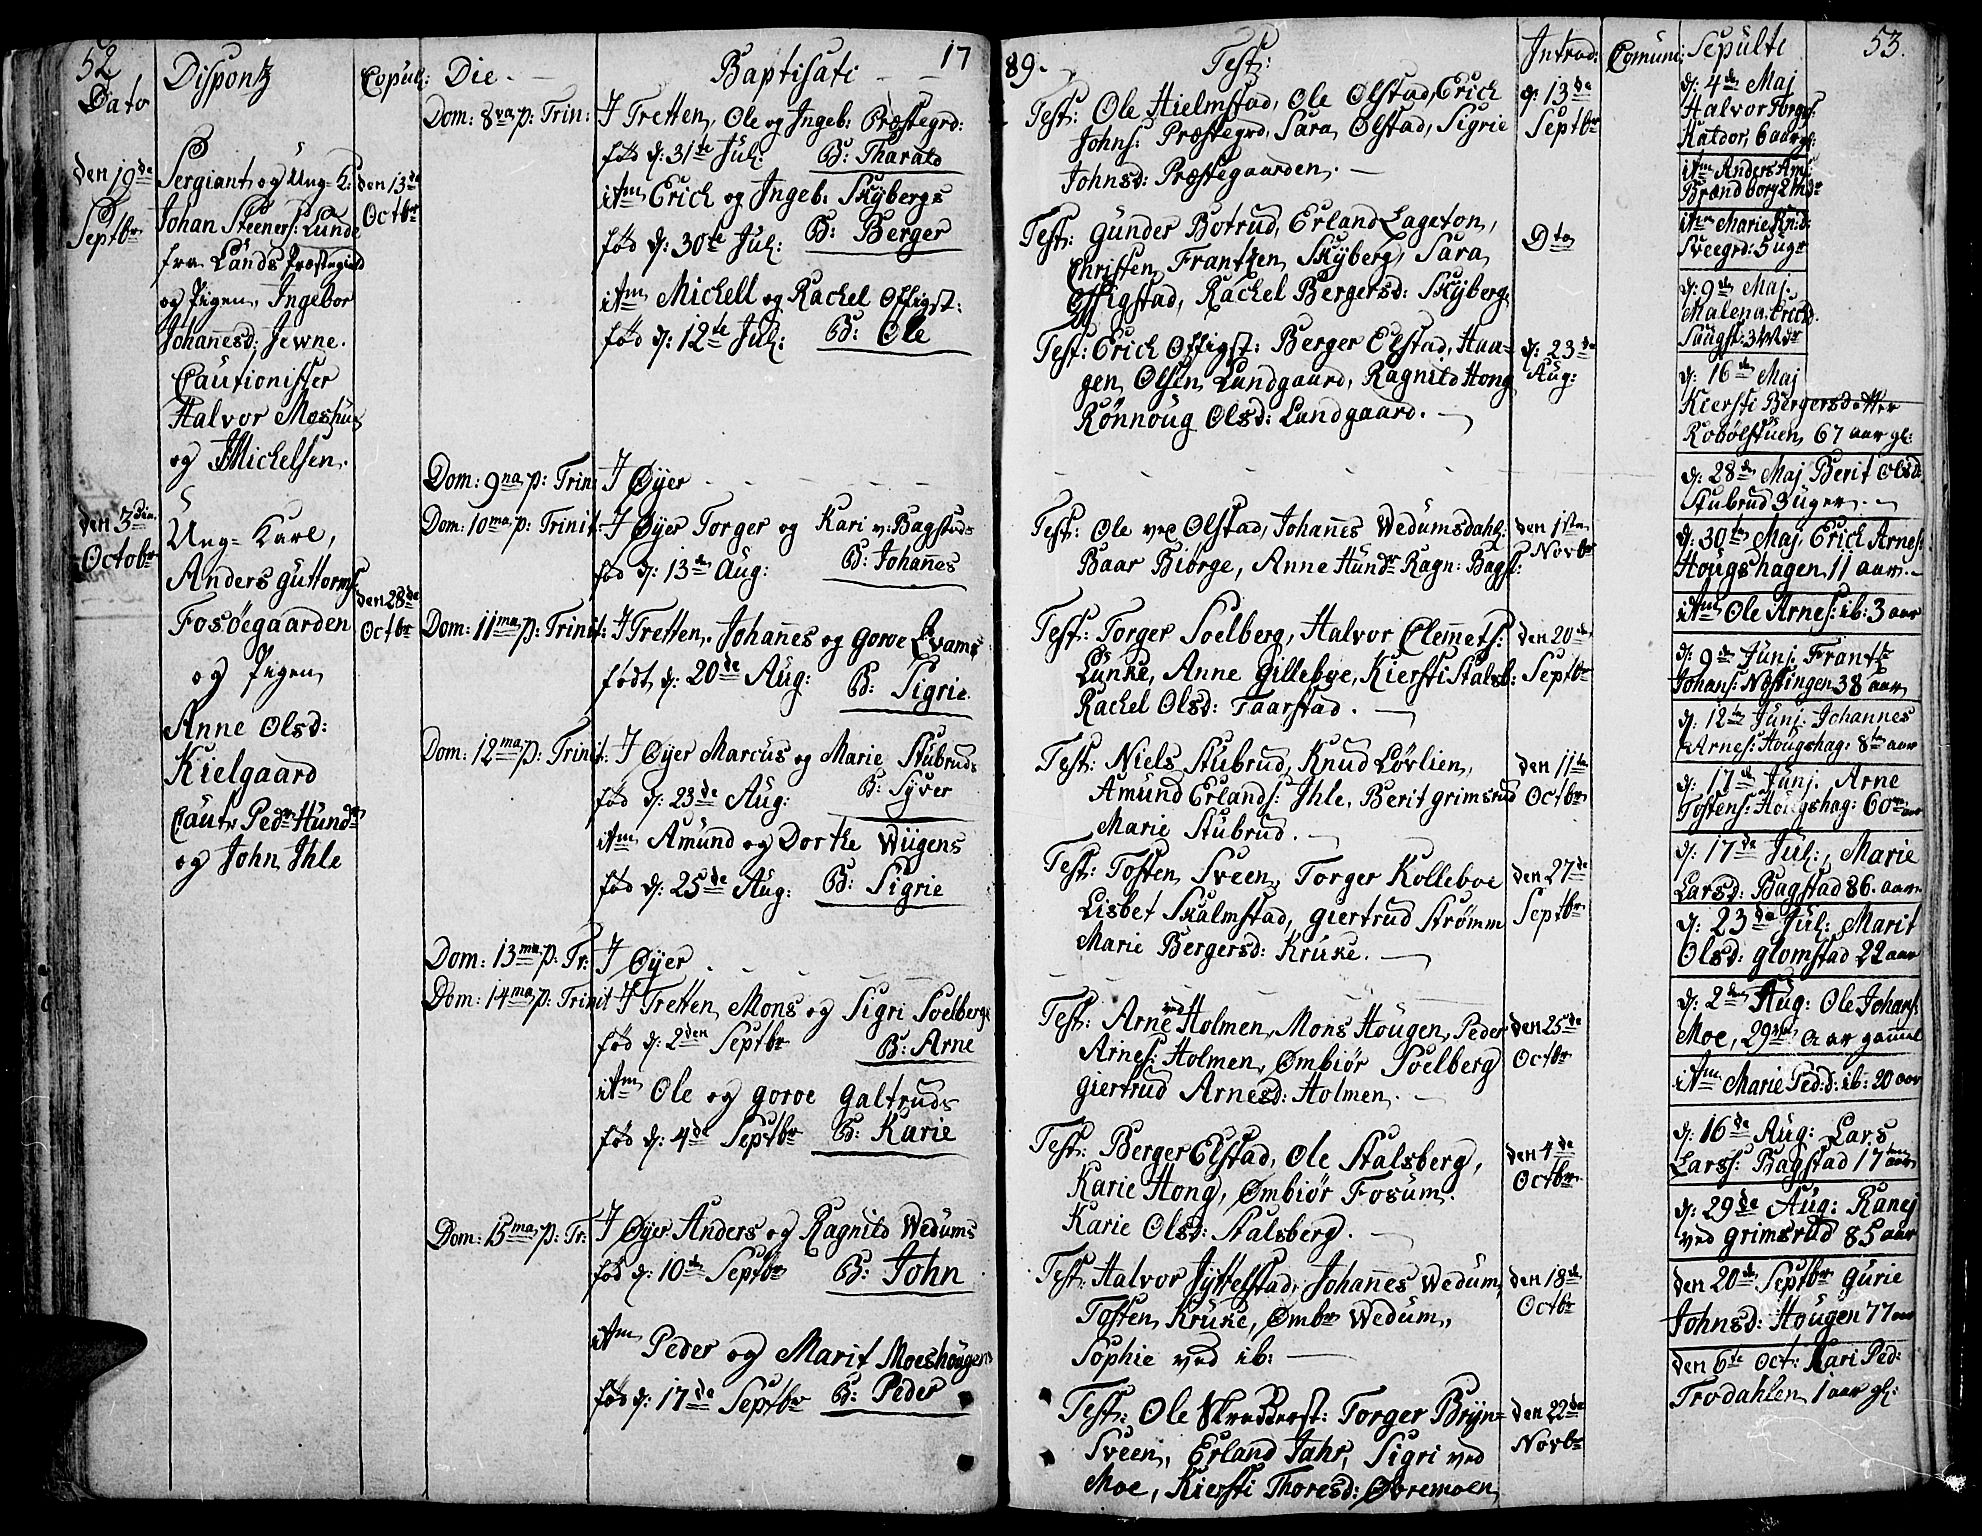 52
Dato
Disponß
Copul:
Die
Baptisati
17
den 19de
Septbr
Sergiant og Ung-K:
Johan Steeners: Lunde
fra Lands Præstegield
og Pigen, Ingebor
Johañesd: Jewne.
Cautionister
Halvor Moshu
og Michelsen.
den 13de
Octbr
den 3die
Octobr
Ung-Karl,
Anders Guttorms:
Fosöegaarden
og Pigen
Anne Olsd:
Kielgaard
Caut: Pedr Hundr
og John Ihle
den 28de
Octbr
Dom: 8va p: Trin:
I Tretten, Ole og Ingeb: Præstegrd:
fød d: 31te Jul: B: Tharald
itm Erich og Ingeb: Skÿbergs
fød d: 30te Jul: B: Berger
itm Michell og Rachel Offigst:
fød d: 12te Jul: B: Ole
Dom: 9na p: Trin:
I Øÿer
Dom: 10ma p: Trinit:
I Øÿer Torger og Kari v: Bagstads
fød d: 13de Aug: B: Johañes
Dom: 11ma p: Trinit:
I Tretten. Johañes og Goroe Qvams
født d: 20de Aug: B: Sigrie.
Dom: 12ma p: Trinit:
I Øÿer Marcus og Marie Stubruds
fød d: 23de Aug: B: Syver
itm Amund og Dorthe Wiigens
fød d: 25de Aug: B: Sigrie
Dom: 13ma p: Tr:
I Øÿer
Dom: 14ma p: Trinit
I Tretten Mons og Sigri Soelbergs
fød d: 2den Septbr B: Arne
itm Ole og Goroe Galtruds
fød d: 4de Septbr B: Karie
Dom: 15ma p: Tr:
I Øÿer Anders og Ragnild Wedums
fød d: 10de Septbr B: John
itm Peder og Marit Moeshougens
fød d: 17de Septbr B: Peder
89.
Test:
Introd:
Comuni:
Sepulti
53.
Test: Ole Hielmstad, Ole Ølstad, Erich
Johns: Præstegrd, Sara Ølstad, Sigrie
Johnsd: Præstegaarden.
d: 13de
Septbr
Test: Gunder Botrud, Erland Lageton,
Christen Frantzen Skÿberg, Sara
Offigstad, Rachel Bergersd: Skÿberg,
Dto
Test: Erich Offigst: Berger Elstad, Haa-
gen Olsen Lundgaard, Ragnild Hong
Rönnoug Olsd: Lundgaard.
d: 23de
Aug:
Test: Ole ved Olstad, Johañes Wedumsdahl:
Baar Biörge, Anne Hundr Ragn: Bagst:
den 1ste
Novbr
Test: Torger Soelberg, Halvor Clemets:
Lunke, Anne Gilleboe, Kiersti Stalsb:
Rachel Olsd: Taarstad.
den 20de
Septbr
Test: Niels Stubrud, Knud Lövlien,
Amund Erlands: Ihle, Berit Grimsrud
Marie Stubrud.
den 11te
Octbr
Test: Tosten Sveen, Torger Kolleboe
Lisbet Skalmstad, Giertrud Strømm
Marie Bergersd: Kruke.
den 27de
Septbr
Test: Arne ved Holmen, Mons Hougen, Peder
Arnes: Holmen, Ømbiör Soelberg
Giertrud Arnesd: Holmen.
den 25de
Octbr
Test: Berger Elstad, Ole Stalsberg,
Karie Hong, Ømbiör Fosum.
Karie Olsd: Stalsberg.
den 4de
Octbr
Test: Halvor Jÿttelstad, Johañes Wedum,
Tosten Kruke, Ømbr Wedum,
Sophie ved ib:
den 18de
Octbr
Test: Ole Skredderst: Torger Brÿn-
Sveen, Erland Jahr, Sigri ved
Moe, Kiersti Thoresd: Øvremoen
den 22de
Novbr
d: 4de Maj
Halvor Torgs:
6 aar gl:
itm Anders Am:
Brændborg
itm Marie Knd:
Sveegrd: 5 ugr
d: 9de Maj.
Malena Ericd.
d: 16de Maj
Kiersti Bergersdatter
Robølstuen 67 aar gl:
d: 28de Maj Berit Olsd:
Stubrud 3 uger.
d: 30te Maj Erich Arnes:
Hougshagen 11 aar.
itm Ole Arnes: ib: 3 aar
d: 9de Junj. Frantz
Johans: Nÿssingen 38 aar
d: 12te Junj. Johannes
Arnes: Hougshag: 8te aar
d: 17de Junj. Arne
Tostens: Hougshag: 60 aar
d: 17de Jul:, Marie
Larsd: Bagstad 86. aar.
d: 23de Jul: Marit
Olsd: Glomstad 22 aar
d: 2den Aug: Ole Johans:
Moe, 29 aar gamel
itm Marie Ped:d: ib: 20 aar
d: 16de Aug: Lars
Larss: Bagstad 17 aar
d: 29de Aug: Ranej
ved Grimsrud 85 aar
den 20de Septbr Gurie
Johnsd: Hougen 77 aar
den 6te Oct: Kari Ped:
Trodahlen 1 aar gl: